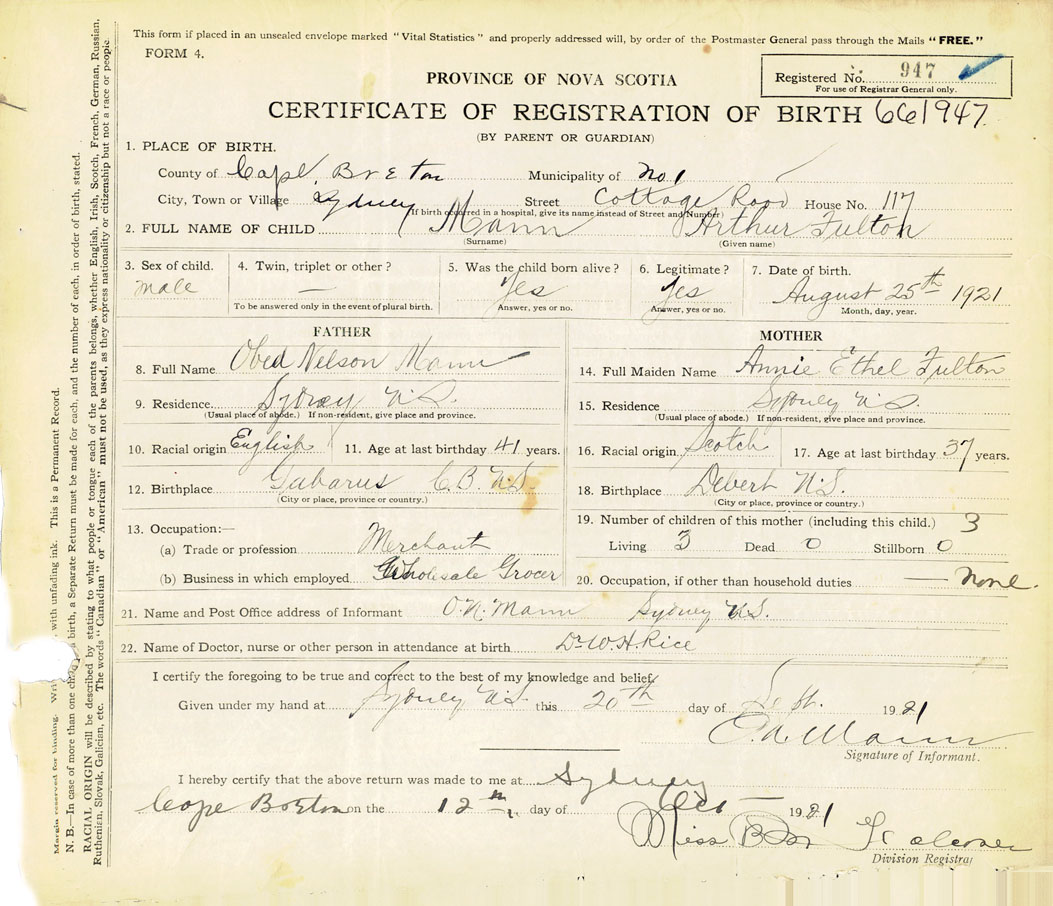 This form if placed in an unsealed envelope marked "Vital Statistics" and properly addressed will, by order of the Postmaster General pass through the Mails "FREE."
FORM 4.
PROVINCE OF NOVA SCOTIA
Registered No. 947
For use of Registrar General only.
CERTIFICATE OF REGISTRATION OF BIRTH 661947
(BY PARENT OR GUARDIAN)
1. PLACE OF BIRTH.
County of Cape Breton Municipality of No. 1
City, Town or Village Sydney Street Cottage Road House No. 117
If birth occurred in a hospital, give its name instead of Street and Number)
2. FULL NAME OF CHILD Mann Arthur Fulton
(Surname) (Given name)
3. Sex of child. 4. Twin, triplet or other? 5. Was the child born alive? 6. Legitimate? 7. Date of birth.
male — Yes Yes August 25th 1921
To be answered only in the event of plural birth. Answer, yes or no. Answer, yes or no. Month, day, year.
FATHER
8. Full Name Obed Nelson Mann
9. Residence. Sydney N.S.
(Usual place of abode.) If non-resident, give place and province.
10. Racial origin English 11. Age at last birthday 41 years.
12. Birthplace Gabarus C.B. N.S.
(City or place, province or country.)
13. Occupation:—
(a) Trade or profession Merchant
(b) Business in which employed Wholesale Grocer
MOTHER
14. Full Maiden Name Annie Ethel Fulton
15. Residence Sydney N.S.
(Usual place of abode.) If non-resident, give place and province.
16. Racial origin Scotch 17. Age at last birthday 37 years.
18. Birthplace Debert N.S.
(City or place, province or country.)
19. Number of children of this mother (including this child.) 3
Living 3 Dead 0 Stillborn 0
20. Occupation, if other than household duties — None.
21. Name and Post Office address of Informant O.N. Mann Sydney N.S.
22. Name of Doctor, nurse or other person in attendance at birth Dr W.H. Rice
I certify the foregoing to be true and correct to the best of my knowledge and belief.
Given under my hand at Sydney N.S. this 20th day of Sept. 1921
O.N. Mann
Signature of Informant.
I hereby certify that the above return was made to me at Sydney
Cape Breton on the 12th day of Oct 1921
Miss
Division Registrar
Margin reserved for binding. with unfading ink. This is a Permanent Record.
N. B.—In case of more than one child at a birth, a Separate Return must be made for each, and the number of each, in order of birth, stated.
RACIAL ORIGIN will be described by stating to what people or tongue each of the parents belongs, whether English, Irish, Scotch, French, German, Russian,
Ruthenian, Slovak, Galician, etc. The words "Canadian" or "American" must not be used, as they express nationality or citizenship but not a race or people